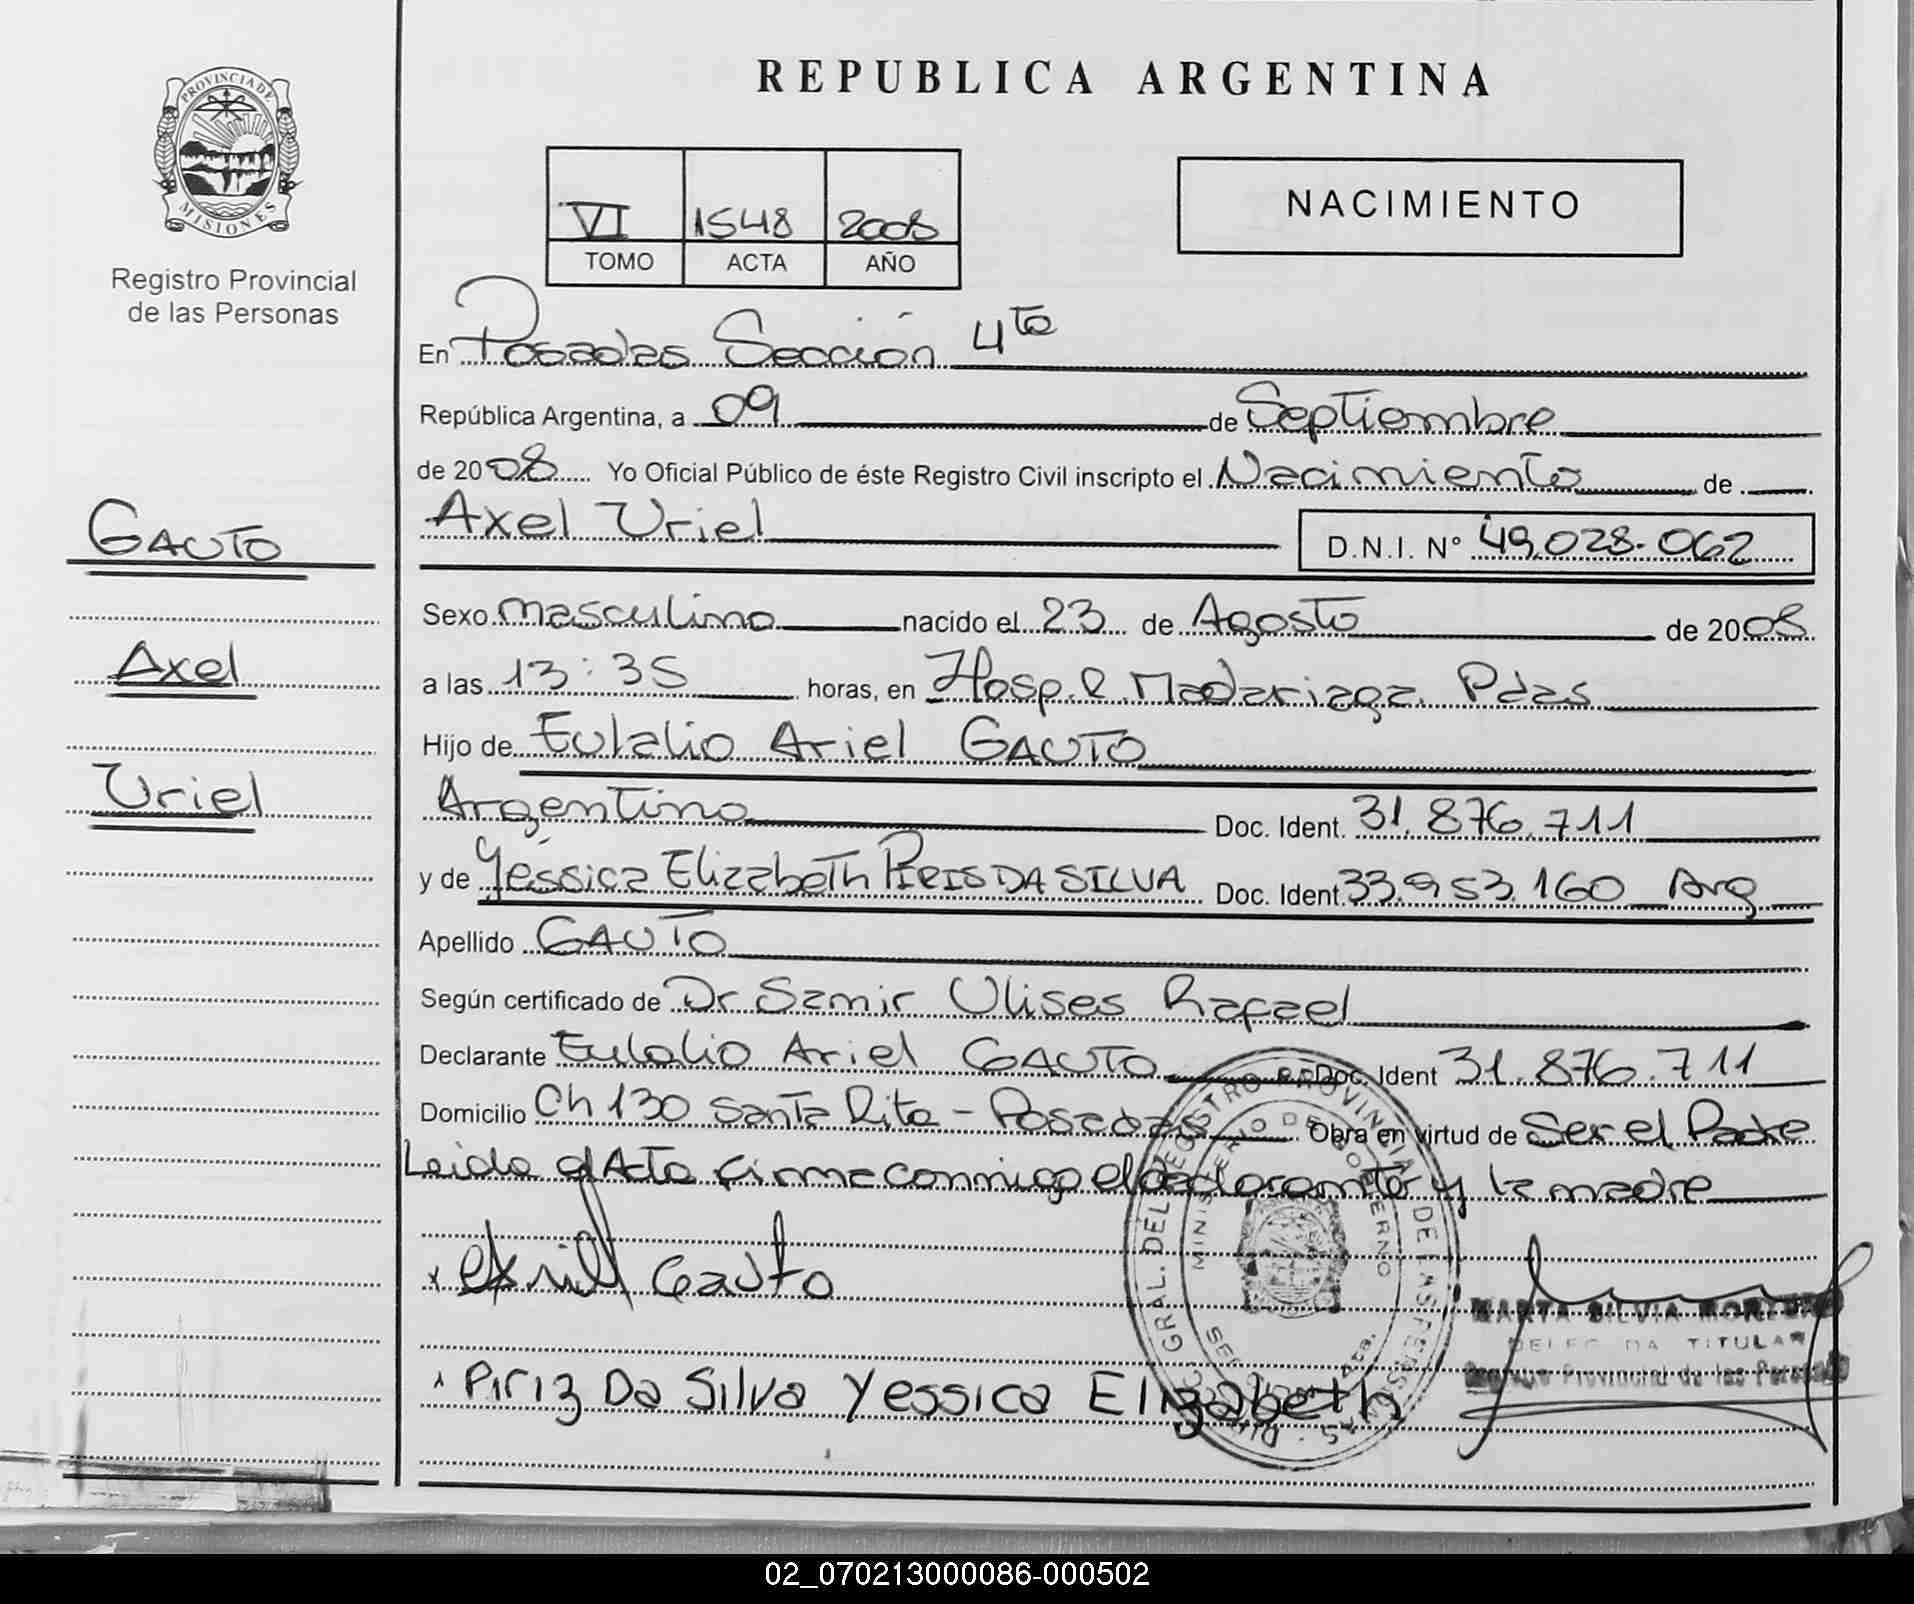 PROVINCIA DE
MISIONES
Registro Provincial
de las Personas
GAUTO
Axel
Uriel
REPUBLICA ARGENTINA
VI 1548 2008
TOMO ACTA AÑO
NACIMIENTO
En Posadas Sección 4ta
República Argentina, a 09 de Septiembre
de 2008 Yo Oficial Público de éste Registro Civil inscripto el Nacimiento de
Axel Uriel D.N.I. N° 49.028.062
Sexo masculino nacido el 23 de Agosto de 2008
a las 13:35 horas, en Hosp. R. Madariaga. Pdas
Hijo de Eulalio Ariel GAUTO
Argentino Doc. Ident. 31.876.711
y de Yéssica Elizabeth PIRIS DA SILVA Doc. Ident. 33.953.160 Arg
Apellido GAUTO
Según certificado de Dr. Samir Ulises Rafael
Declarante Eulalio Ariel GAUTO Doc. Ident 31.876.711
Domicilio Ch 130 Santa Rita - Posadas Obra en virtud de Ser el Padre
Leida el Acta firma conmigo el declarante y la madre
x Gauto
MARTA SILVIA
TITULAR
Registro Provincial de las Personas
Piriz Da Silva Yessica Elizabeth
GRAL. DEL REGISTRO PROVINCIAL DE LAS PERSONAS
MINISTERIO DE GOBIERNO
02_070213000086-000502